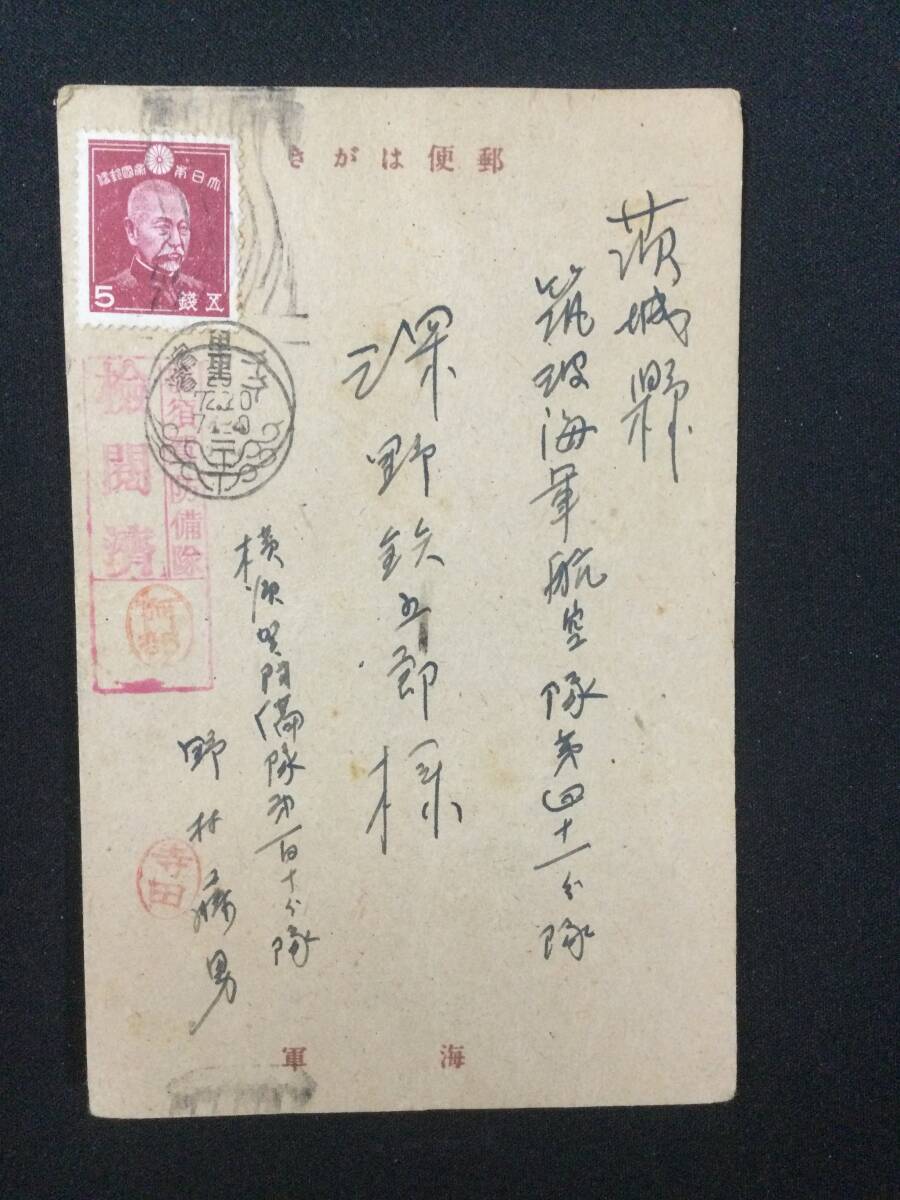 郵便はがき
茨城縣
筑波海軍航空隊第四十一分隊
深野鉄五郎様
横須賀防備隊第一百十分隊
野村藤男
寺田
大日本帝國郵便
5 五錢
横須賀防備隊
検閲済
海軍